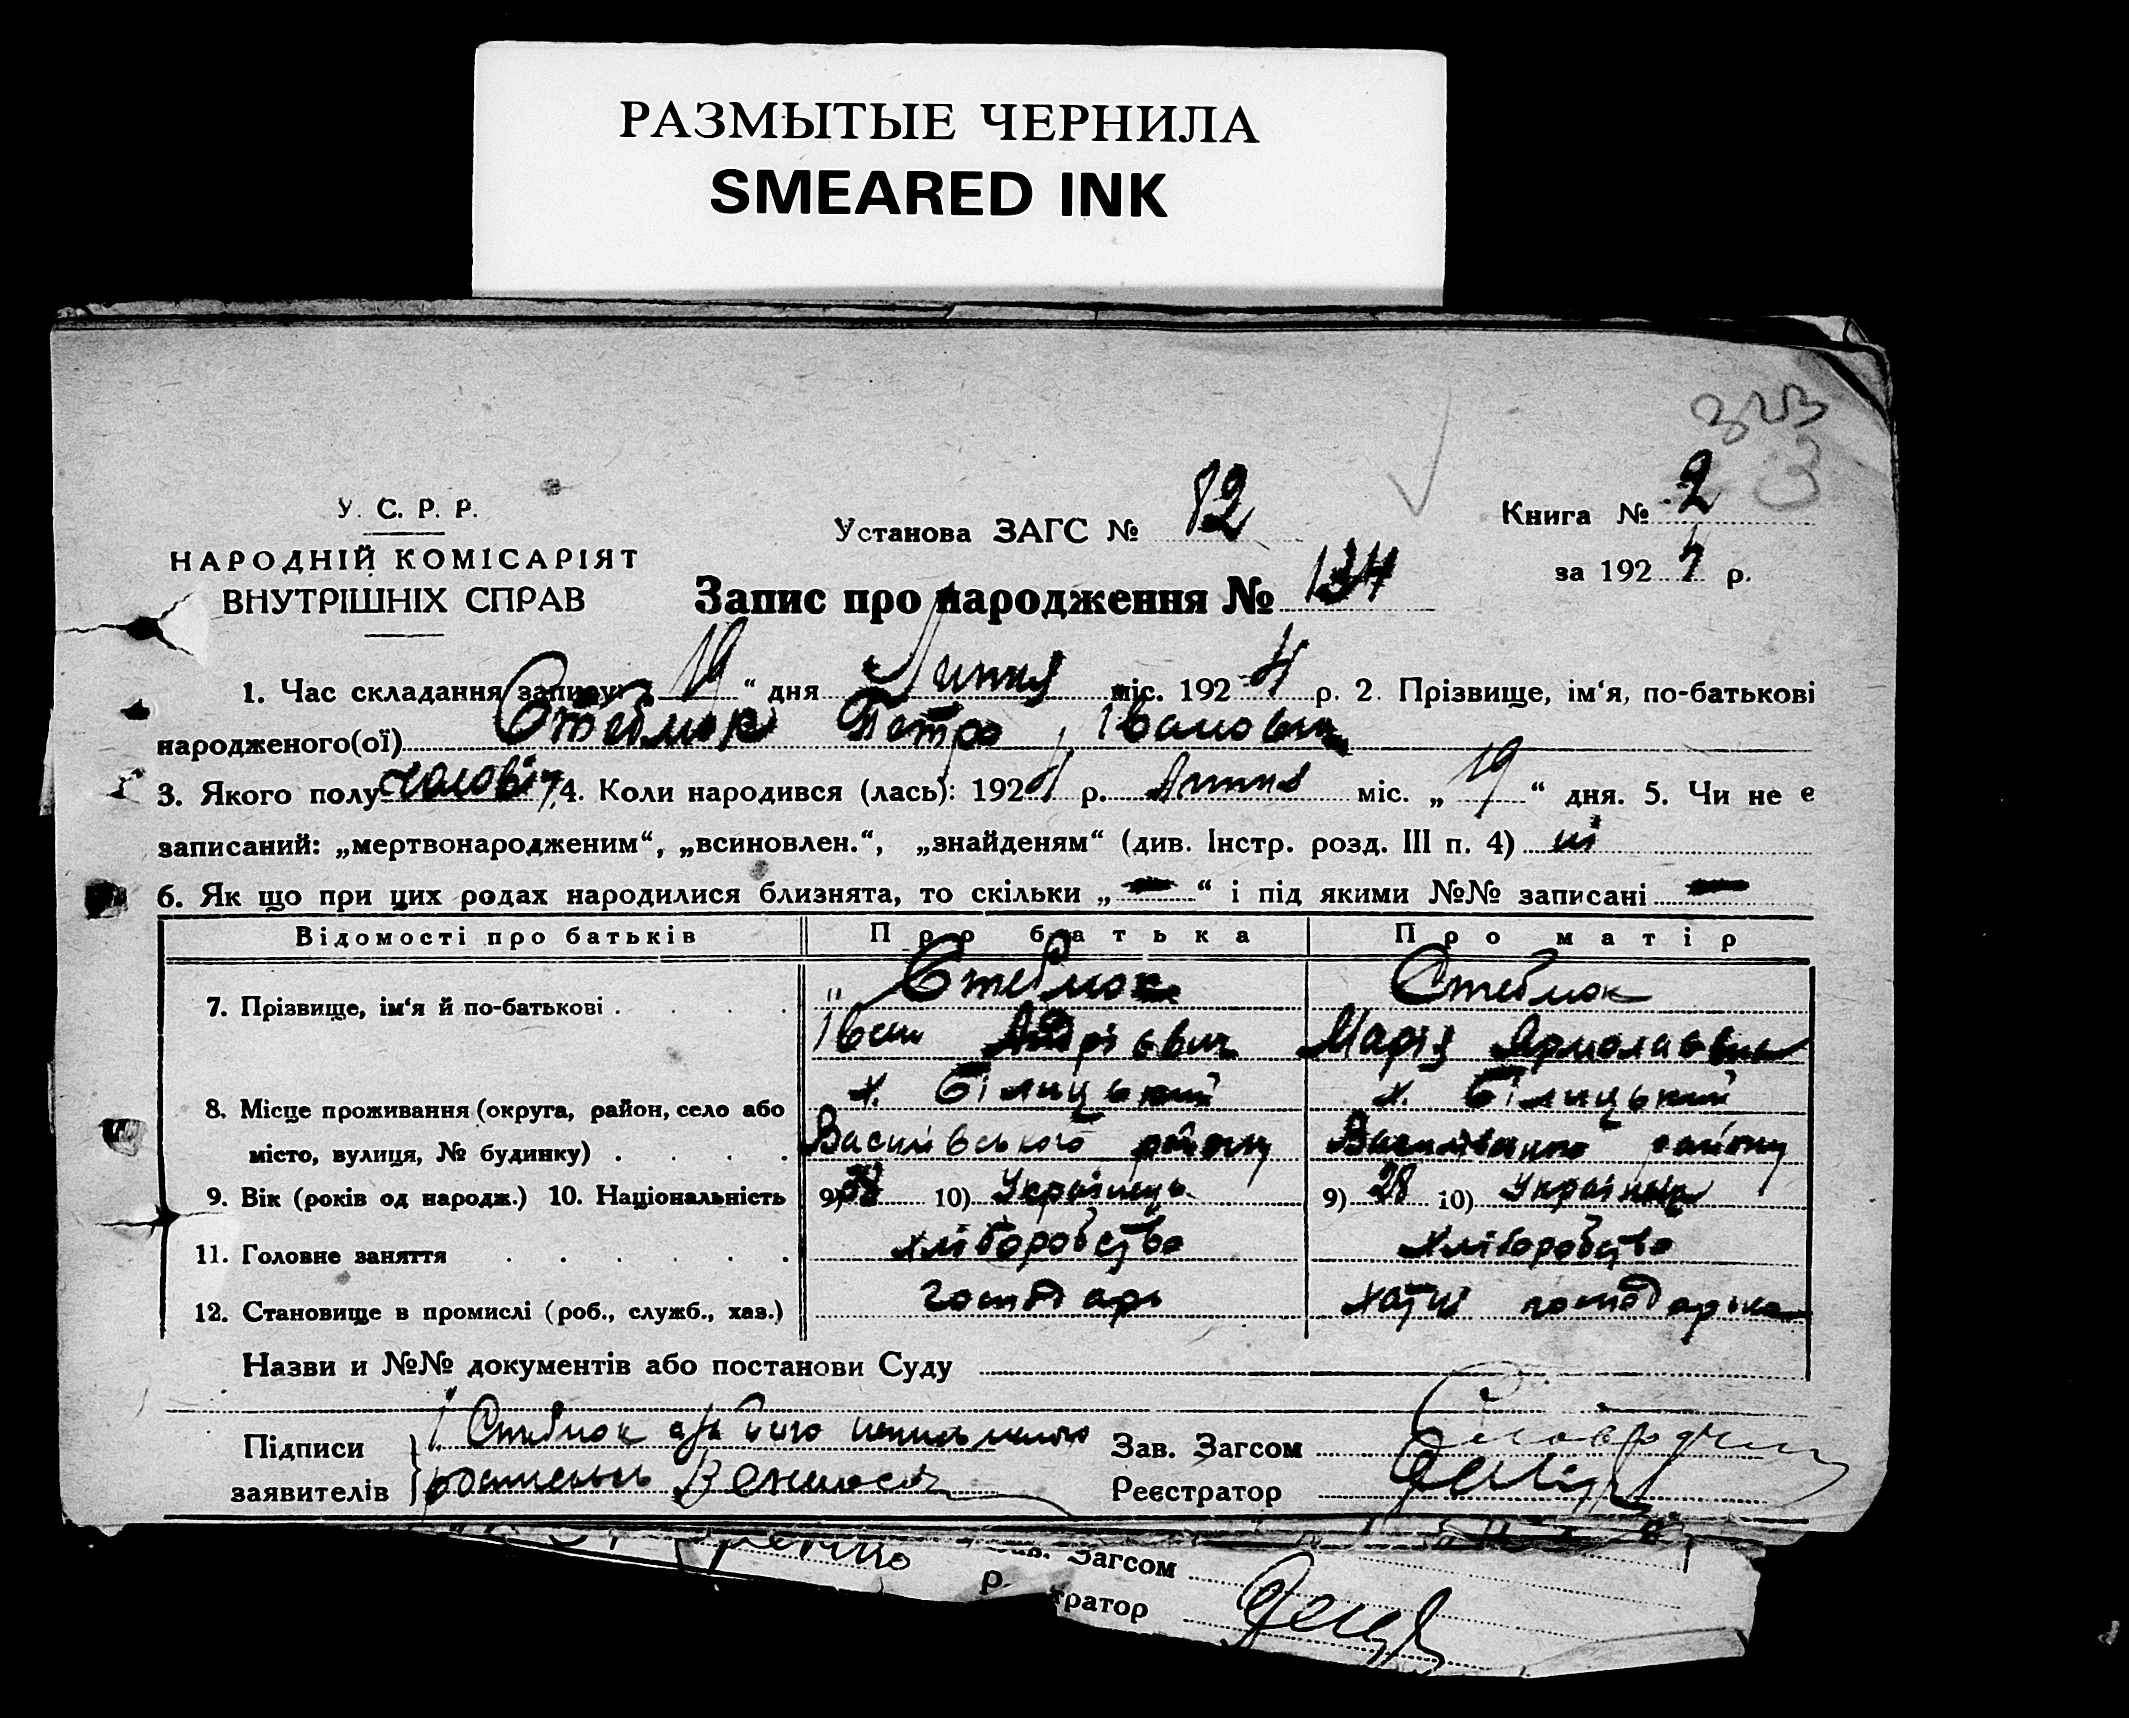 РАЗМЫТЫЕ ЧЕРНИЛА
SMEARED INK
3
У. С. Р. Р.
НАРОДНІЙ КОМІСАРІЯТ
ВНУТРІШНІХ СПРАВ
Установа ЗАГС № 12
Книга № 2
за 192 р.
Запис про народження № 134
1. Час складання запису: „19“ дня Липня міс. 192 р. 2. Прізвище, ім‘я, по-батькові
народженого(ої) Стеблюк Петро Іванович
3. Якого полу чоловіч 4. Коли народився (лась): 192 р. Липня міс. „19“ дня. 5. Чи не є
записаний: „мертвонародженим“, „всиновлен.“, „знайденям“ (див. Інстр. розд. III п. 4) ні
6. Як що при цих родах народилися близнята, то скільки „—“ і під якими №№ записані —
Відомості про батьків Про батька Про матір
7. Прізвище, ім‘я й по-батькові Стеблюк Стеблюк
Іван Андрієвич Марія Ярмолаєвна
х. Білицький х. Білицький
8. Місце проживання (округа, район, село або
місто, вулиця, № будинку) Василівського району Василівського району
9. Вік (років од народж.) 10. Національність 9) 10) Українець 9) 28 10) Українка
11. Головне заняття хліборобство хліборобство
12. Становище в промислі (роб., служб., хаз.) господарь хатня господарька
Назви и №№ документів або постанови Суду
Підписи заявителів Стеблюк
Зав. Загсом
Реєстратор
Загсом
р. тратор